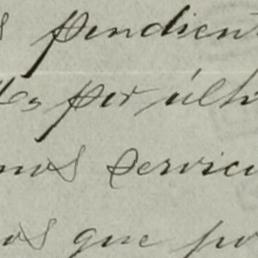 s pendient
les por últi
mos servici
os que po